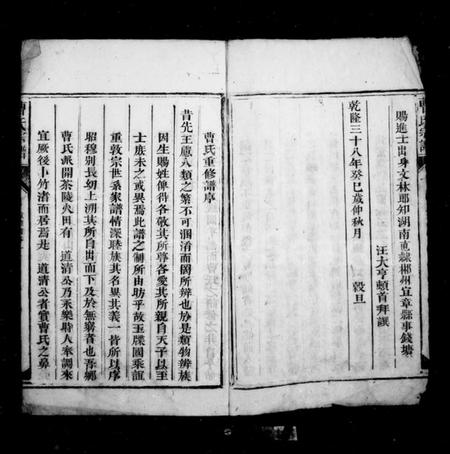 賜進士出身文林郎知湖南直隸郴州宜章縣事錢塘
汪大亨頓首拜譔
乾隆三十八年癸巳歲仲秋月 穀旦
曹氏重修譜序
昔先王處人類之繁不可涸淆而罔所辨也於是類物辨族
因生賜姓俾得各敬其所尊各愛其所親自天子以至
士庶未之或異焉此譜之制所由昉乎故玉牒國乘誼
重敦宗世系家譜情深睦族其名異其義一皆所以序
昭穆別長幼上溯其所自出而下及於無窮者也吾鄉
曹氏派開茶陵久矣有 道清公乃永樂時人來調來
宜厥後卜竹渚而基焉是 道清公者實曹氏之鼻